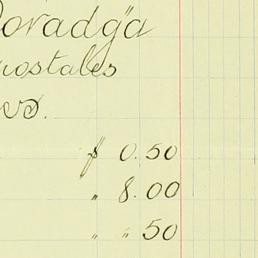 Doradga
postales
$ 0.50
" 8.00
" " 50